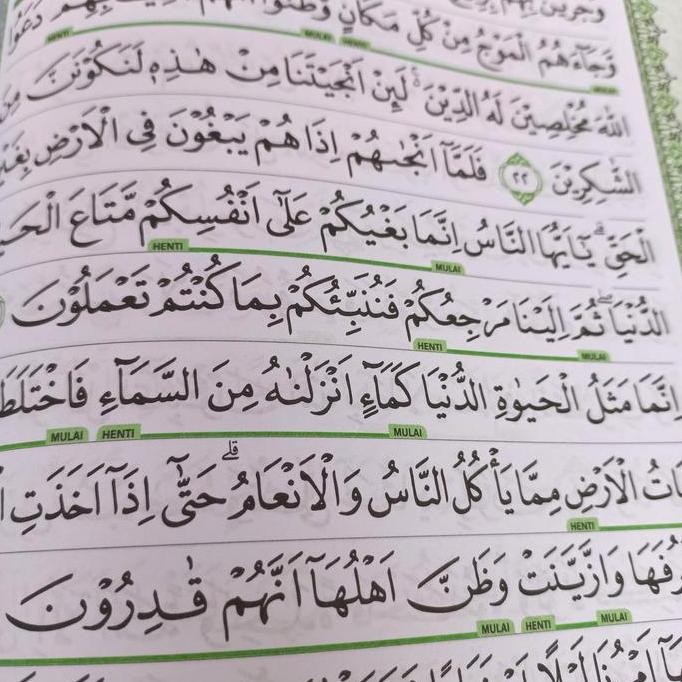 وَجَرَيْنَ بِهِمْ
وَّجَاۤءَهُمُ الْمَوْجُ مِنْ كُلِّ مَكَانٍ وَّظَنُّوْٓا دَعَوُا
HENTI MULAI HENTI MULAI
اللّٰهَ مُخْلِصِيْنَ لَهُ الدِّيْنَ ەۚ لَىِٕنْ اَنْجَيْتَنَا مِنْ هٰذِهٖ لَنَكُوْنَنَّ مِنَ
الشّٰكِرِيْنَ ٢٢ فَلَمَّآ اَنْجٰىهُمْ اِذَا هُمْ يَبْغُوْنَ فِى الْاَرْضِ بِغَيْرِ
الْحَقِّ ۗ يٰٓاَيُّهَا النَّاسُ اِنَّمَا بَغْيُكُمْ عَلٰٓى اَنْفُسِكُمْ مَّتَاعَ
HENTI MULAI
الدُّنْيَا ۖ ثُمَّ اِلَيْنَا مَرْجِعُكُمْ فَنُنَبِّئُكُمْ بِمَا كُنْتُمْ تَعْمَلُوْنَ
HENTI MULAI
اِنَّمَا مَثَلُ الْحَيٰوةِ الدُّنْيَا كَمَاۤءٍ اَنْزَلْنٰهُ مِنَ السَّمَاۤءِ فَاخْتَلَطَ
MULAI HENTI MULAI
بَاتُ الْاَرْضِ مِمَّا يَأْكُلُ النَّاسُ وَالْاَنْعَامُ ۗ حَتّٰٓى اِذَآ اَخَذَتِ
HENTI
رُفَهَا وَازَّيَّنَتْ وَظَنَّ اَهْلُهَآ اَنَّهُمْ قٰدِرُوْنَ
MULAI HENTI MULAI